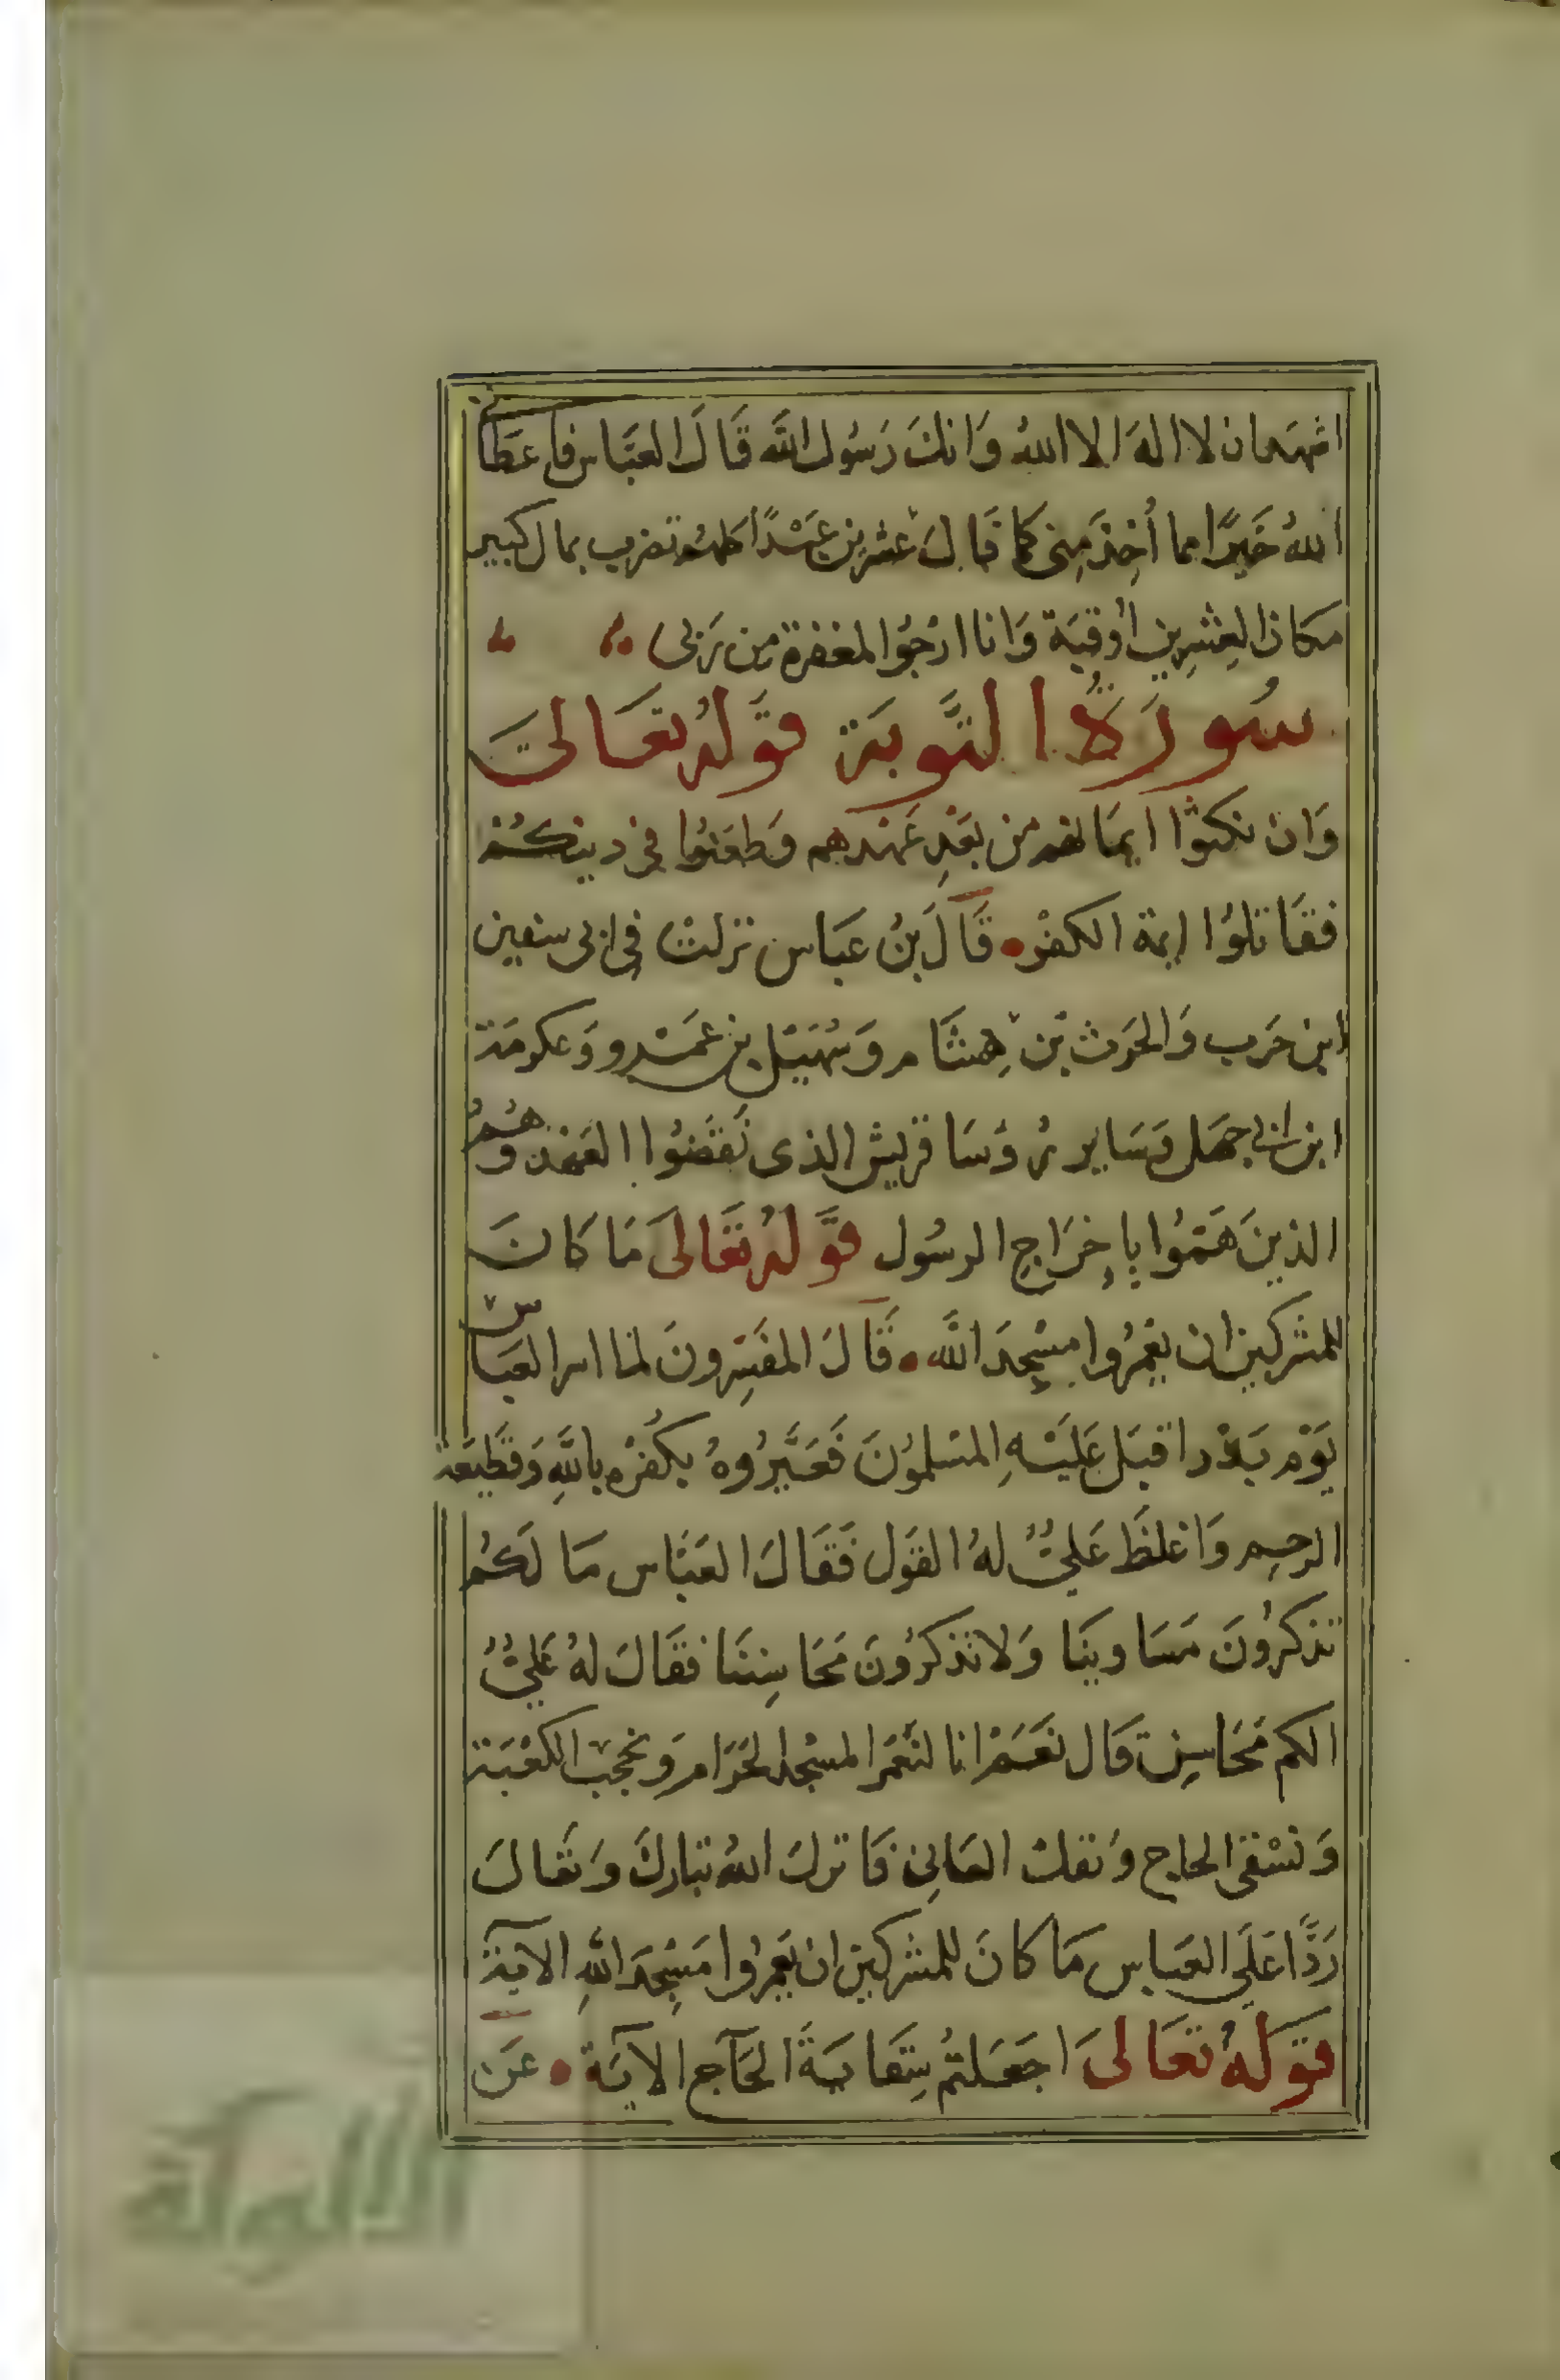 اشهد ان لا اله الا الله وَانكَ رَسُول الله قَالَ العبَّاس فاعطاني
اللهُ خَيرًا مما أُخِذَ مِنى كما قَالَ عشرين عَبْدًا كلهُم تضرب بمال كبير
مكان العِشرِين أوقيَة وَانا ارْجُوا المغفرة من رَبى
سُورَةُ التَّوبَة قَوْلهُ تعَالىَ
وَان نكثوا ايمَانهم من بَعْدِ عَهدهم وَطعَنُوا فى دينكُمْ
فقَاتلوُا ايمة الكفْر قَالَ بنُ عبَاس نزلتْ فى ابى سفين
ابن حَرب وَالحَرث بْن هِشَام وَسُهَيْل بن عَمْرو وَعكرمَة
ابن ابى جهَل وَسَاير رُؤسَا قريش الذى نَقَضُوا العَهْد وَهُمُ
الذينَ هَمُّوا بِاِخرَاجِ الرسُول قوَّلهُ تعَالىَ مَا كَانَ
للمشركين ان يَعْمُرُوا مسْجِدَ الله قَالَ المفَسِرونَ لما اسر العبَاس
يَوْم بَدْر اقبَل عَلَيْهِ المسْلموُنَ فَعَيَّرُوهُ بكُفْرِه بِاللَّهِ وَقَطِيعَة
الرحِم وَاغلظَ عَليٌّ لهُ القَول فَقَالَ العَبَّاس مَا لَكُم
تذكرُونَ مَسَاوينَا وَلا تذكرُونَ مَحَاسِننَا فقَالَ لهُ عَليٌّ
الكم مَحَاسِن قَال نعَمْ انا لنَعْمُر المسْجد الحرَام وَنحجب الكعْبَة
وَنسْقى الحاج وَنفك العَانِى فَانزل اللهُ تبَاركَ وَتعَالَ
رَدًّا عَلَى العبَاس مَا كانَ للمشركين ان يَعْمرُوا مَسْجِدَ اللهِ الايَة
قوَلهُ تعَالىَ اجَعَلتُم سِقَايَةَ الحَآج الآيَة عَن
الألوكة